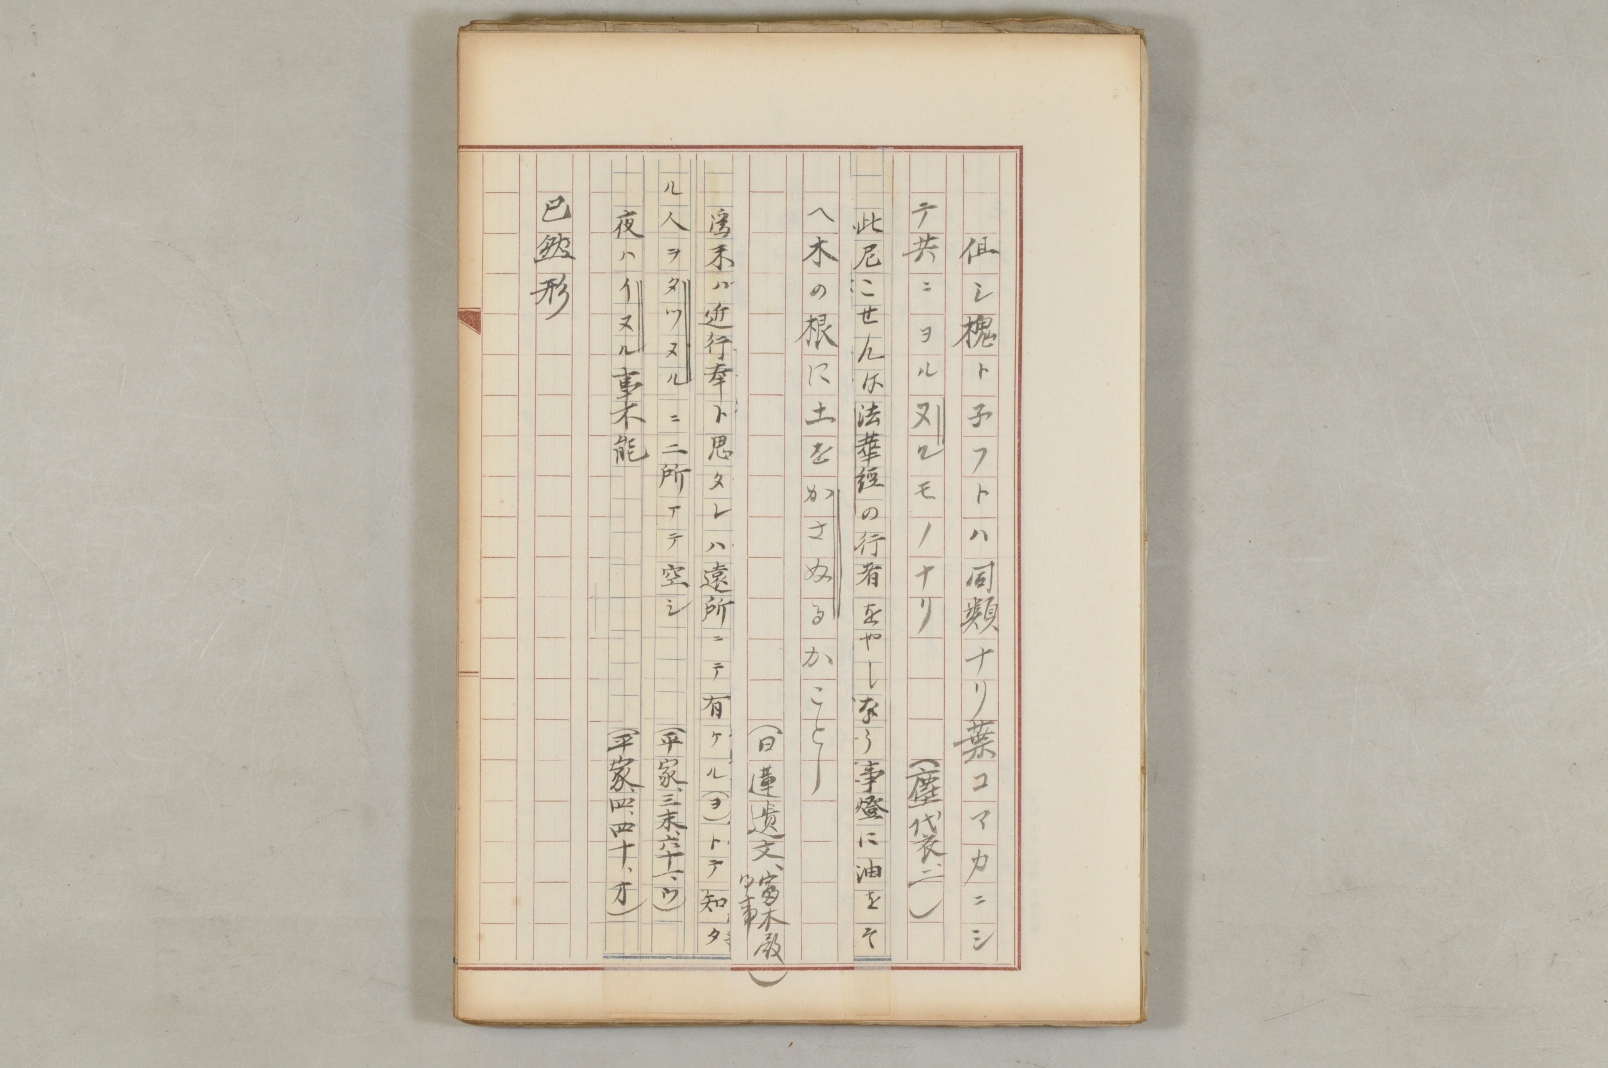 但シ槐ト予フトハ同類ナリ葉コマカニシ
テ共ニヨルヌルモノナリ
(塵袋、二)
此尼こせんは法華経の行者をやしなう事燈に油をそ
へ木の根に土をかさぬるかことし
(日蓮遺文、富木殿
御書)
為末ハ近行奉ト思タレハ遠所ニテ有ケル(ヲ)トテ知タ
ル人ヲタツヌルニ二所アテ空シ
(平家、三末、六十一、ウ)
夜ハイヌル事不能
(平家、四、四十、オ)
已然形